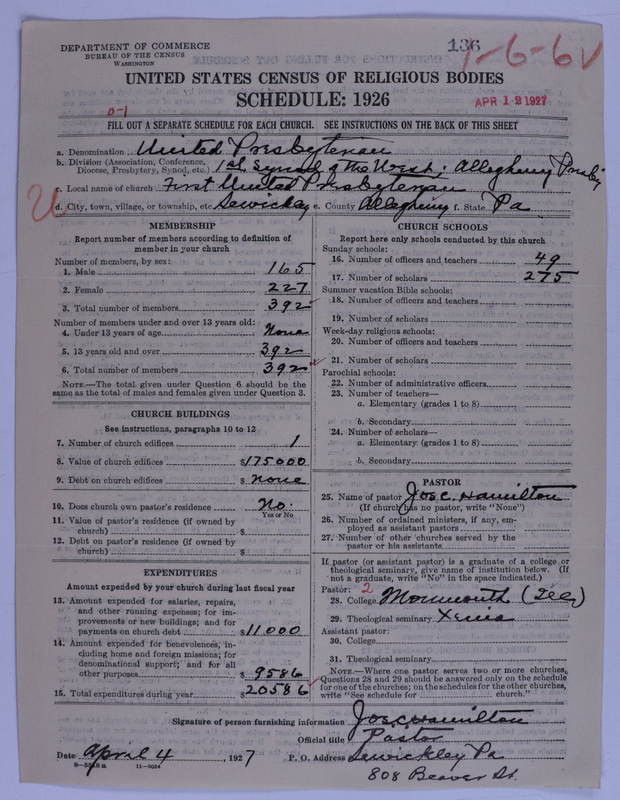 DEPARTMENT OF COMMERCE
BUREAU OF THE CENSUS
WASHINGTON
136
1-6-6v
UNITED STATES CENSUS OF RELIGIOUS BODIES
SCHEDULE: 1926
APR 12 1927
0-1
FILL OUT A SEPARATE SCHEDULE FOR EACH CHURCH. SEE INSTRUCTIONS ON THE BACK OF THIS SHEET
a. Denomination United Presbyterian
b. Division (Association, Conference, Diocese, Presbytery, Synod, etc.) 1st Synod of the West; Allegheny Presby
c. Local name of church First United Presbyterian
U d. City, town, village, or township, etc. Sewickley e. County Allegheny f. State Pa
MEMBERSHIP
Report number of members according to definition of
member in your church
Number of members, by sex:
1. Male 165
2. Female 227
3. Total number of members 392
Number of members under and over 13 years old:
4. Under 13 years of age None
5. 13 years old and over 392
6. Total number of members 392
NOTE.—The total given under Question 6 should be the
same as the total of males and females given under Question 3.
CHURCH BUILDINGS
See instructions, paragraphs 10 to 12
7. Number of church edifices 1
8. Value of church edifices $175000
9. Debt on church edifices $ none
10. Does church own pastor's residence No.
Yes or No
11. Value of pastor's residence (if owned by
church) $
12. Debt on pastor's residence (if owned by
church) $
EXPENDITURES
Amount expended by your church during last fiscal year
13. Amount expended for salaries, repairs,
and other running expenses; for im-
provements or new buildings; and for
payments on church debt $11000
14. Amount expended for benevolences, in-
cluding home and foreign missions; for
denominational support; and for all
other purposes $9586
15. Total expenditures during year $20586
CHURCH SCHOOLS
Report here only schools conducted by this church
Sunday schools:
16. Number of officers and teachers 49
17. Number of scholars 275
Summer vacation Bible schools:
18. Number of officers and teachers
19. Number of scholars
Week-day religious schools:
20. Number of officers and teachers
21. Number of scholars
Parochial schools:
22. Number of administrative officers
23. Number of teachers—
a. Elementary (grades 1 to 8)
b. Secondary
24. Number of scholars—
a. Elementary (grades 1 to 8)
b. Secondary
PASTOR
25. Name of pastor Jos. C. Hamilton
(If church has no pastor, write "None")
26. Number of ordained ministers, if any, em-
ployed as assistant pastors
27. Number of other churches served by the
pastor or his assistants
If pastor (or assistant pastor) is a graduate of a college or
theological seminary, give name of institution below. (If
not a graduate, write "No" in the space indicated.)
Pastor: 2
28. College Monmouth (Ill)
29. Theological seminary Xenia
Assistant pastor:
30. College
31. Theological seminary
NOTE.—Where one pastor serves two or more churches,
Questions 28 and 29 should be answered only on the schedule
for one of the churches; on the schedules for the other churches,
write "See schedule for church."
Signature of person furnishing information Jos. C. Hamilton
Official title Pastor
Date April 4, 1927 P. O. Address Sewickley Pa
8-5518 a 11-9054
808 Beaver St.